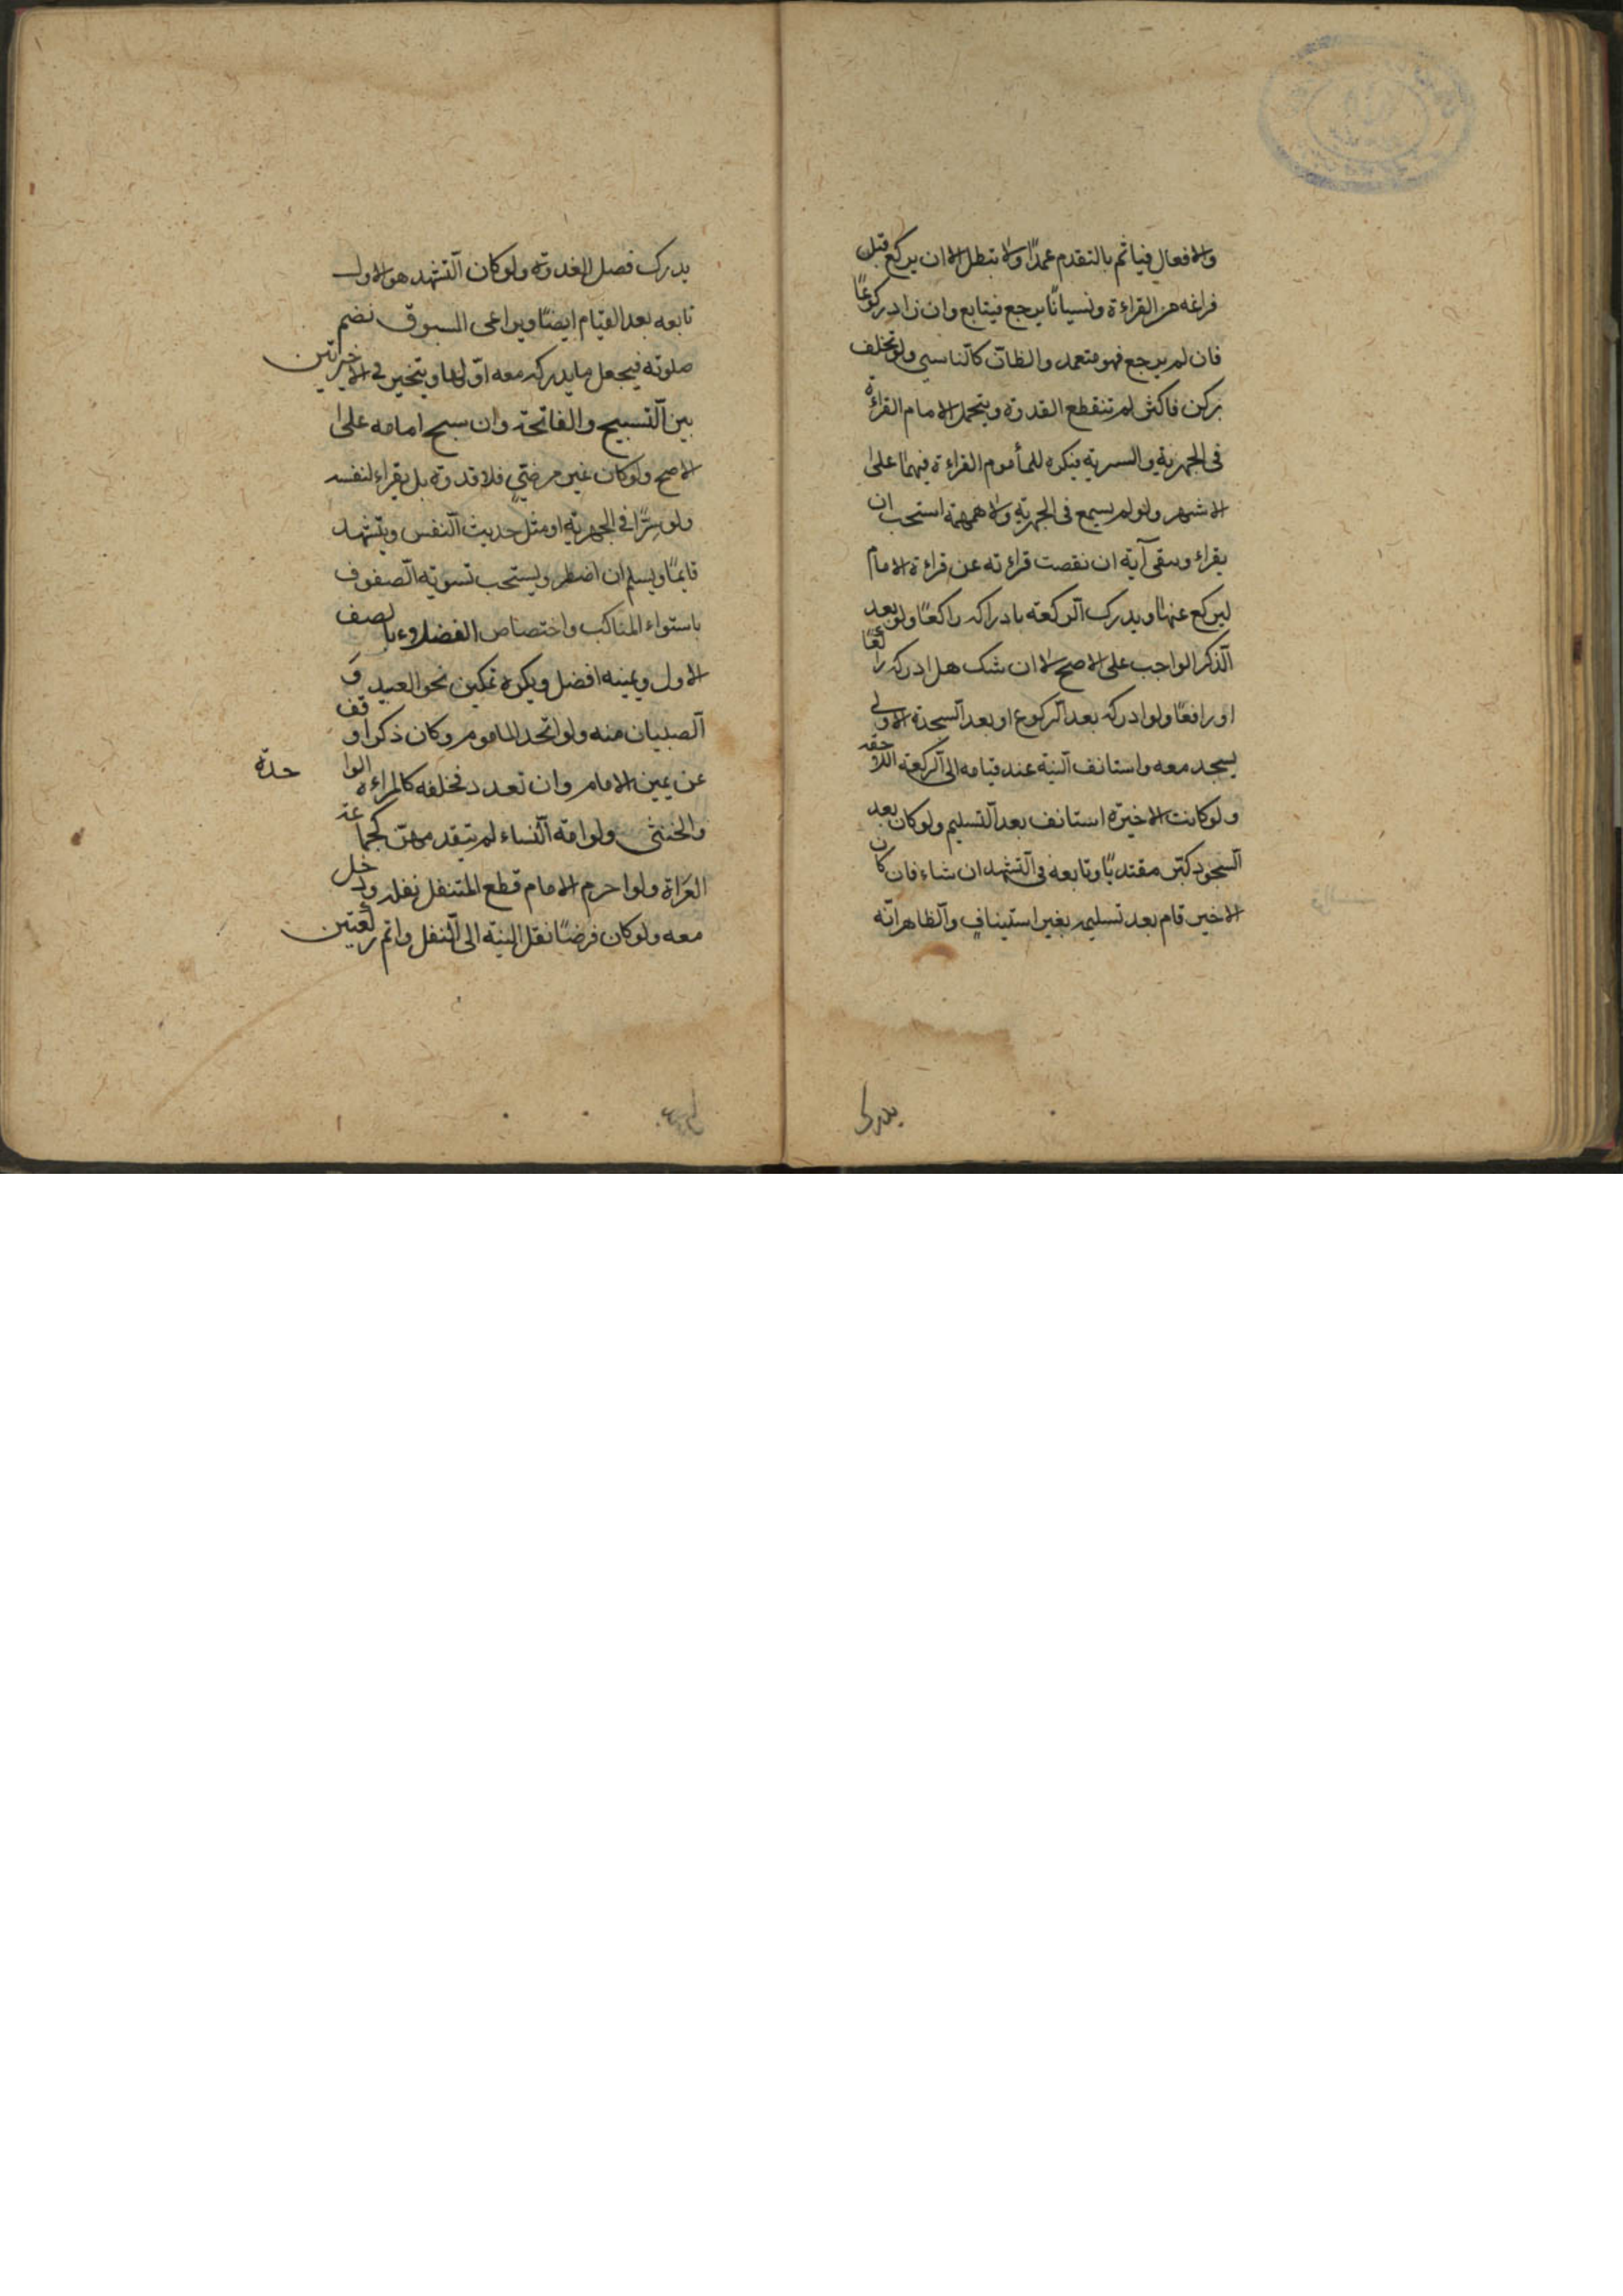 والافعال فياثم بالتقدم عمدًا ولا تبطل الا ان يركع قبل
فراغه من القراءة ونسيانًا يرجع فيتابع وان زاد ركوعًا
فان لم يرجع فهو متعمد والظانّ كالناسي ولو تخلف
بركن فاكثر لم تنقطع القدوة ويتحمل الامام القراءة
فى الجهرية والسرية فيكره للمأموم القراءة فيهما على
الاشهر ولو لم يسمع فى الجهرية ولا همهمة استحب ان
يقراء ويبقى آية ان نقصت قراءته عن قراءة الامام
ليركع عنها ويدرك الركعة بادراكه راكعًا ولو بعد
الذكر الواجب على الاصح الا ان شك هل ادركه راكعًا
او رافعًا ولو ادركه بعد الركوع او بعد السجدة الاولى
يسجد معه واستانف النية عند قيامه الى الركعة اللاحقه
ولو كانت الاخيرة استانف بعد التسليم ولو كان بعد
السجود كبّر مقتديًا وتابعه فى التشهد ان شاء فان كان
الاخير قام بعد تسليمه بغير استيناف والظاهر انّه
يدرك
يدرك فضل القدوة ولو كان التشهد هو الاول
تابعه بعد القيام ايضًا ويراعى المسبوق نضم
صلوته فيجعل ما يدركه معه اوّلها ويتخير فى الاخيرتين
بين التسبيح والفاتحة وان سبح امامه على
الاصح ولو كان غير مرضيّ فلا قدوة بل يقراء لنفسه
ولو سرًّا فى الجهرية او مثل حديث النفس ويتشهد
قايمًا ويسلم ان اضطر ويستحب تسوية الصفوف
باستواء المناكب واختصاص الفضلاء بالصف
الاول ويمينه افضل ويكره تمكين نحو العبيد و
الصبيان منه ولو اتحد الماموم وكان ذكرا وقف
عن يمين الامام وان تعدد فخلفه كالمراءة الواحدة
والخنثى ولو امّه النساء لم تتقدمهنّ كجماعة
العراة ولو احرم الامام قطع المتنفل نفله ودخل
معه ولو كان فرضًا نقل النية الى النفل واتم ركعتين